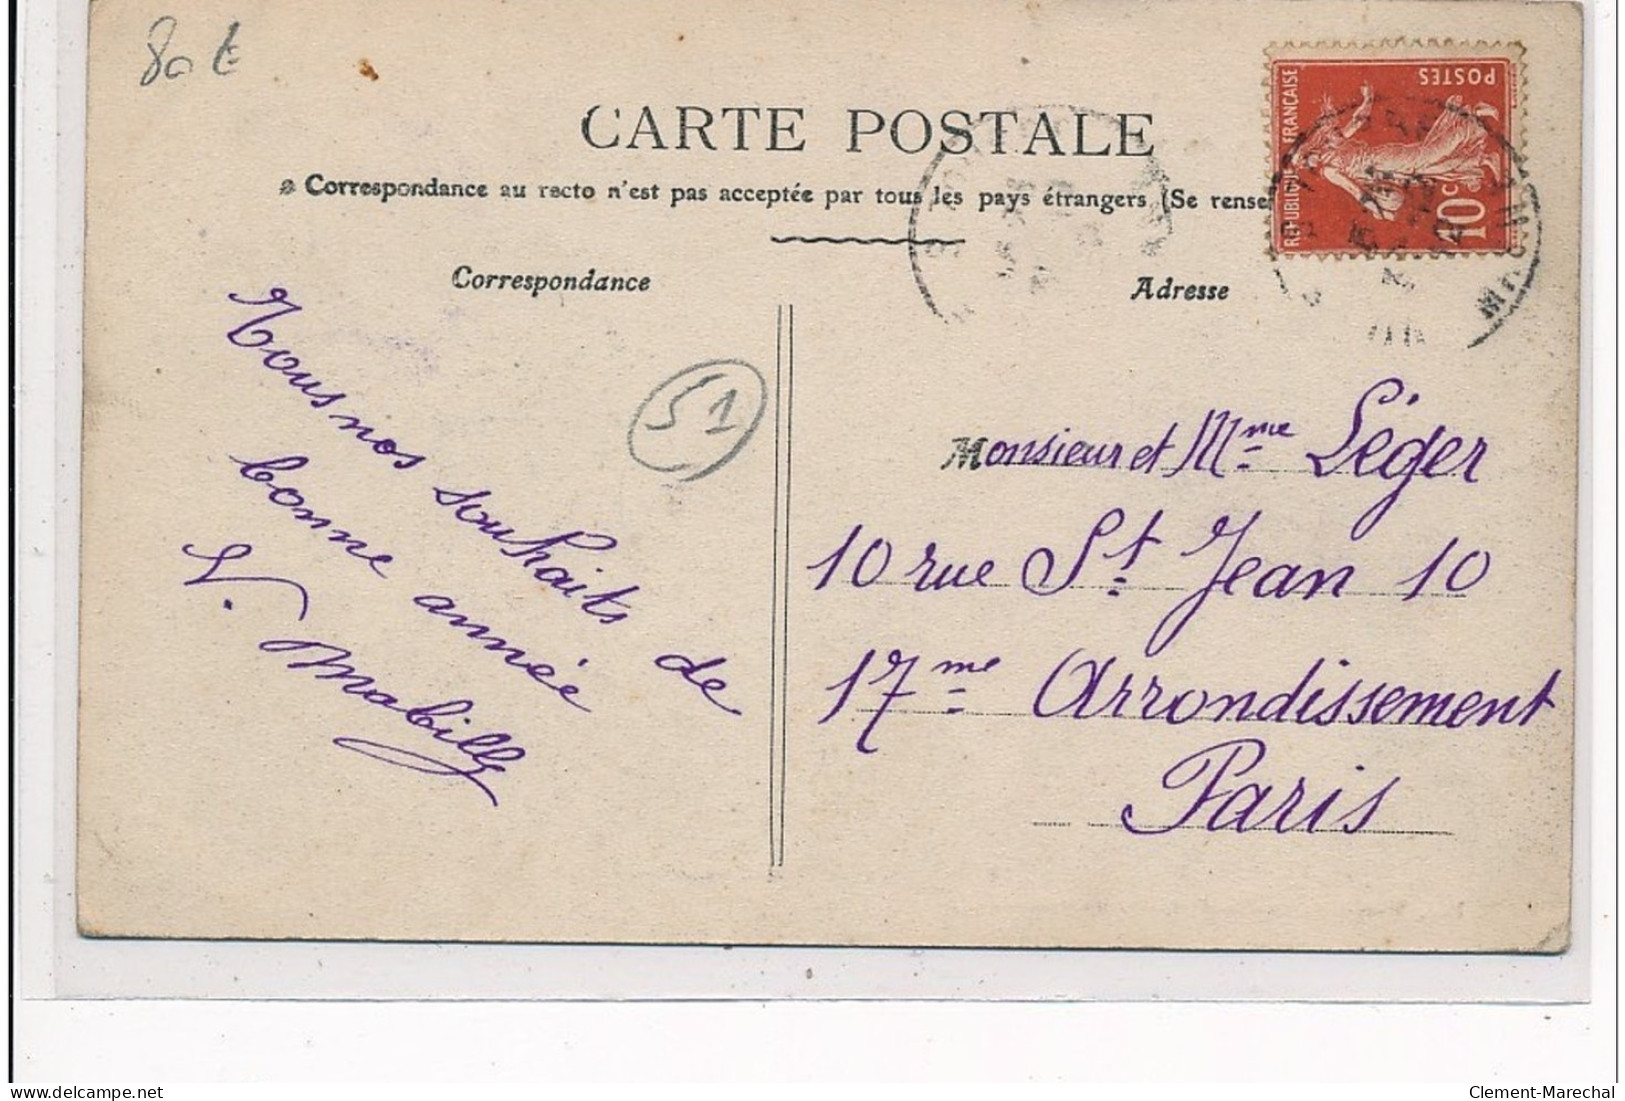 80 €
CARTE POSTALE
Correspondance au recto n'est pas acceptée par tous les pays étrangers (Se rense
Correspondance
Adresse
POSTES
REPUBLIQUE FRANÇAISE
10c
51
Tous nos souhaits de
bonne année
V. Mabilly
Monsieur et Mme Léger
10 rue St. Jean 10
17me Arrondissement
Paris
Clement-Marechal